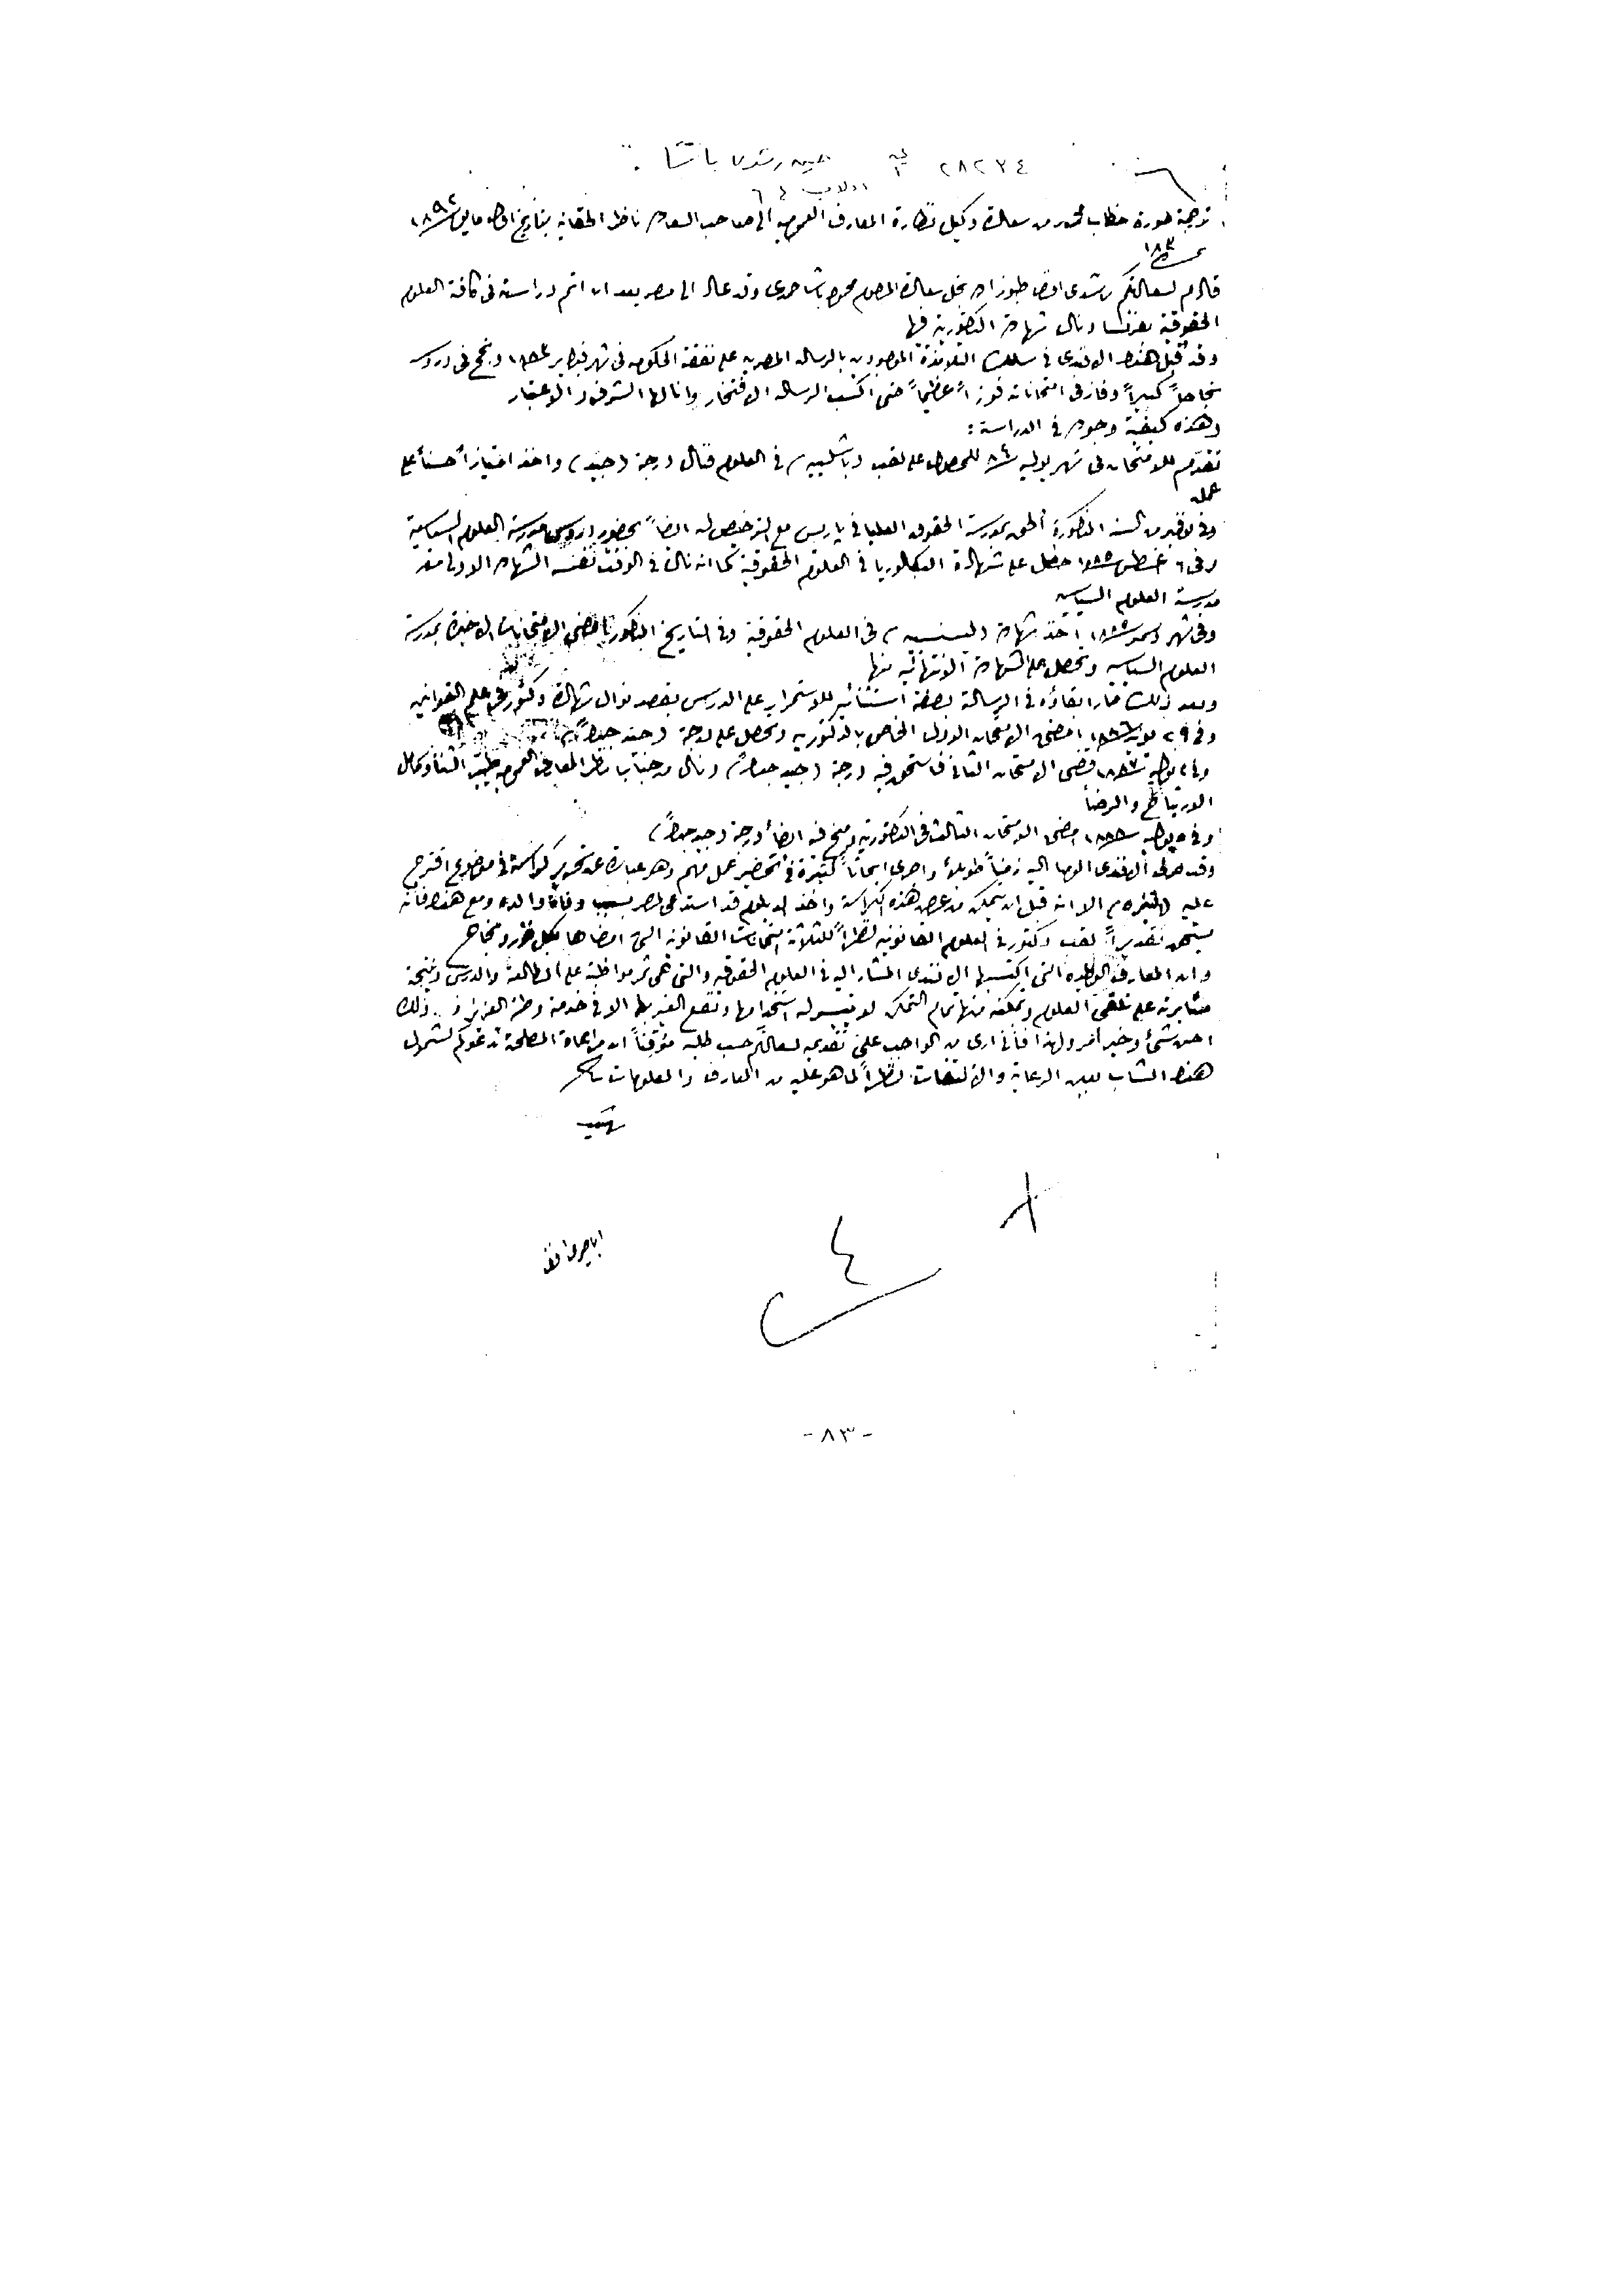 ٢٨٢٣٤ حسين رشدى باشا
دولاب ٤ ٦
ترجمة صورة خطاب محرر من سعادة وكيل نظارة المعارف العمومية الى صاحب السعادة ناظر الحقانية بتاريخ اول مايو سنة ١٨٩٢
نمرة ١٨٣
قادم لسعادتكم رشدى افندى طبوزاده نجل سعادة المرحوم محمود باشا حمدى وقد عاد الى مصر بعد ان اتم دراسته فى كافة العلوم
الحقوقية بفرنسا ونال شهادة الدكتورية فيها
وقد قبل هذا الافندى فى سلك التلامذة الموجودين بالرسالة المصرية على نفقة الحكومة فى شهر فبراير ونجح فى دروسه
نجاحاً كبيراً وفاز فى امتحاناته فوزاً عظيماً حتى اكتسب الرسالة الافتخار وانالها الشرف والاعتبار
وهذه كيفية وجوده فى الدراسة :
تقدم للامتحان فى شهر يوليه سنة ٨٤ للحصول على لقب (باشلييه) فى العلوم فنال درجة (جيد) واخذ امتيازاً حسناً على
عمله
وفى نوفمبر من السنة المذكورة الحق بمدرسة الحقوق العليا فى باريس مع الترخيص له ايضاً بحضور دروس مدرسة العلوم السياسية
وفى ٦ اغسطس سنة ١٨٨٥ حصل على شهادة البكالوريا فى العلوم الحقوقية كما انه نال فى الوقت نفسه الشهادة الاولى من
مدرسة العلوم السياسية
وفى شهر اخذ شهادة (ليسنسيه) فى العلوم الحقوقية وفى التاريخ المذكور امضى الامتحانات الاخيرة بمدرسة
العلوم السياسية وتحصل على الشهادة الانتهائية منها
وبعد ذلك صار ابقاؤه فى الرسالة بصفة استثنائية للاستمرار على الدرس بقصد نوال شهادة دكتور فى علم القوانين
وفى ٢٩ امضى الامتحان الاول الخاص بالدكتورية وتحصل على درجة (جيد جداً)
وفى يوليه سنة ١٨٨٧ امضى الامتحان الثانى فاستحق فيه درجة (جيد جداً) ونال من جناب ناظر المعارف العمومية طيب الثناء وكامل
الارتياح والرضا
وفى يوليه سنة ١٨٨٨ امضى الامتحان الثالث فى الدكتورية ومنح فيه ايضاً درجة (جيد جداً)
وقد صرف الافندى الموما اليه زمناً طويلاً واجرى ابحاثاً كثيرة فى تحضير عمل مهم وهو عبارة عن تحرير كراسة فى موضوع اقترح
عليه الا انه قبل ان يتمكن من عرض هذه الكراسة واخذ الدبلوم قد استدعى لمصر بسبب وفاة والده ومع هذا فانه
يستحق تقديراً لقب دكتور فى العلوم القانونية نظراً للثلاثة امتحانات القانونية التى امضاها بكل فوز ونجاح
وان المعارف الوطيدة التى اكتسبها الافندى المشار اليه فى العلوم الحقوقية والتى هى ثمر مواظبته على المطالعة والدرس ونتيجة
مثابرته على تلقى العلوم وتمكنه منها تمام التمكن لا يتيسر له استخدامها ونفع الغير بها الا فى خدمة وطنه العزيز و ذلك
احسن شىء وخير امر ولهذا فانى ارى من الواجب على تقديمه لسعادتكم حسب طلبه موقناً ان مراعاة المصلحة تدعوكم لشمول
هذا الشاب بعين الرعاية والالتفات نظراً لما هو عليه من المعارف والمعلومات
٤
-٨٣-